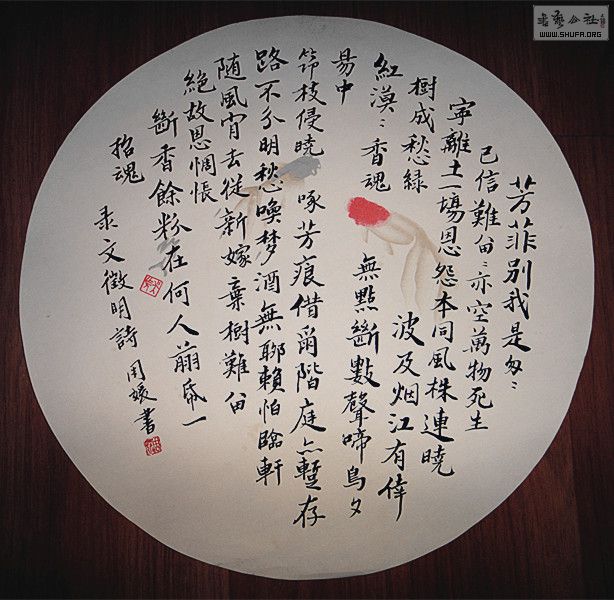 芳菲別我是匆〻
已信難留〻亦空萬物死生
寧離土一場恩怨本同風株連曉
樹成愁綠 波及烟江有倖
紅漠〻香魂 無點斷數聲啼鳥夕
昜中
笻枝侵曉 啄芳痕借爾階庭亦暫存
路不分明愁喚夢酒無聊賴怕臨軒
随風肯去從新嫁棄樹難留
絕故恩惆悵
斷香餘粉在何人翦帋一
招魂
录文徵明詩 周媛書
書藝公社
WWW.SHUFA.ORG